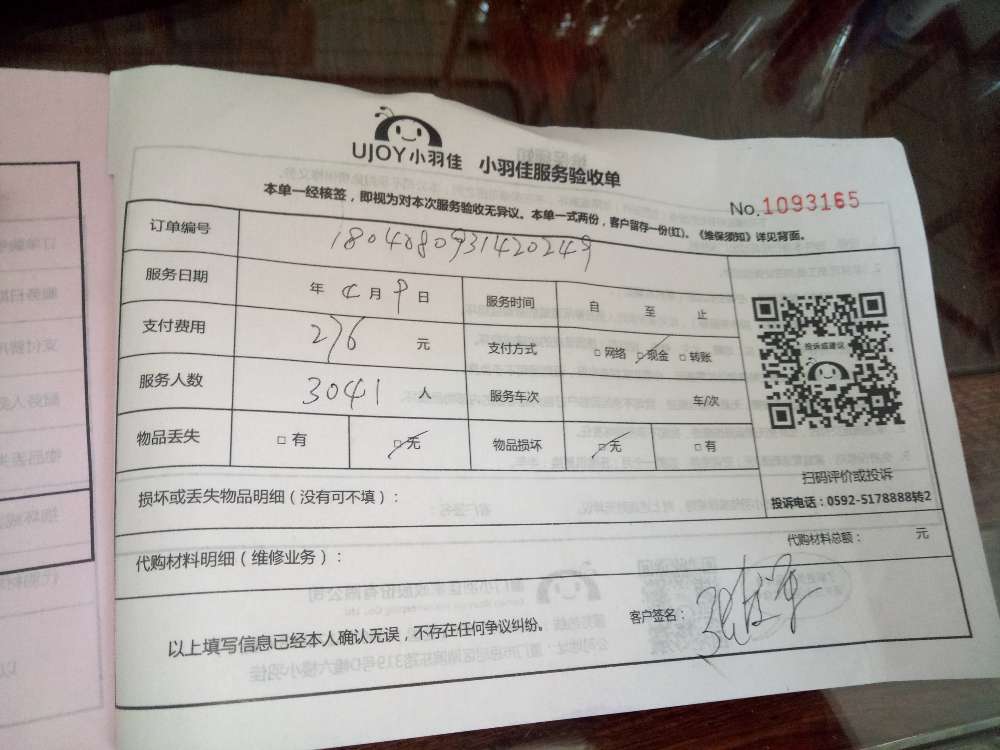 UJOY小羽佳 小羽佳服务验收单
No.1093165
本单一经核签，即视为对本次服务验收无异议。本单一式两份，客户留存一份(红)。《维保须知》详见背面。
订单编号 1804080931420249
服务日期 年 4 月 9 日 服务时间 自 至 止
支付费用 276 元 支付方式 □网络 □现金 □转账
服务人数 3041 人 服务车次 车/次
物品丢失 □有 □无 物品损坏 □无 □有
投诉或建议
扫码评价或投诉
投诉电话：0592-5178888转2
损坏或丢失物品明细（没有可不填）：
代购材料明细（维修业务）： 代购材料总额： 元
以上填写信息已经本人确认无误，不存在任何争议纠纷。 客户签名：